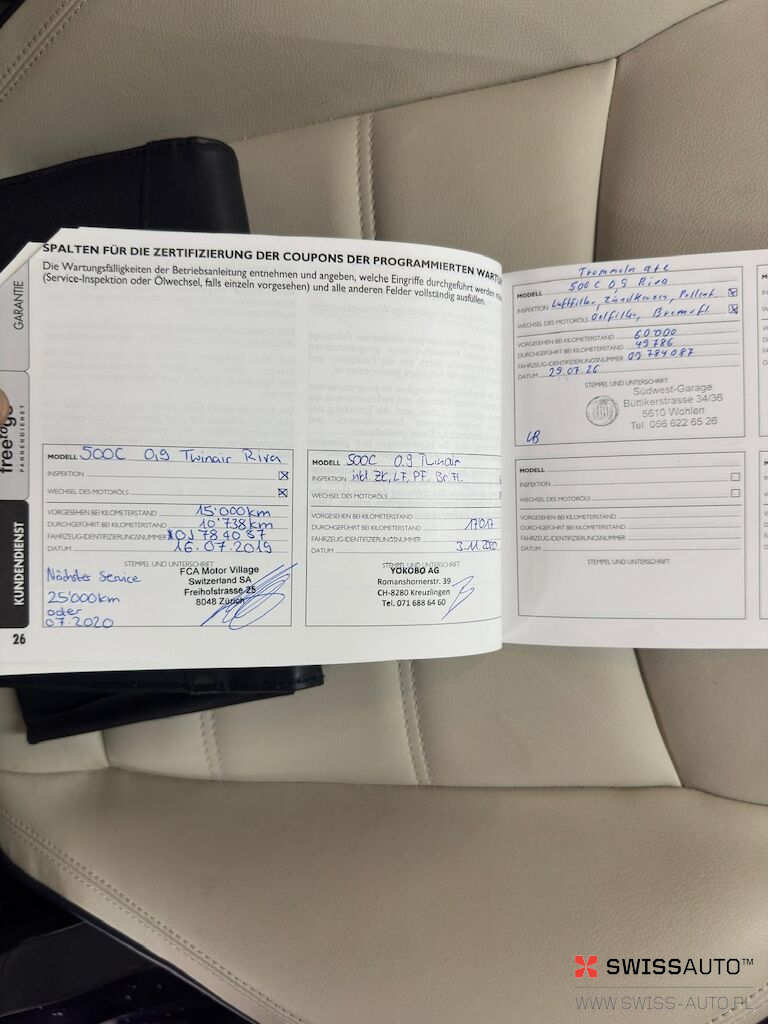 SPALTEN FÜR DIE ZERTIFIZIERUNG DER COUPONS DER PROGRAMMIERTEN WARTUN
Die Wartungsfälligkeiten der Betriebsanleitung entnehmen und angeben, welche Eingriffe durchgeführt werden mü
(Service-Inspektion oder Ölwechsel, falls einzeln vorgesehen) und alle anderen Felder vollständig ausfüllen.
GARANTIE
freetogo
PANNENDIENST
KUNDENDIENST
26
MODELL 500C 0,9 Twinair Riva
INSPEKTION
WECHSEL DES MOTORÖLS
VORGESEHEN BEI KILOMETERSTAND 15'000km
DURCHGEFÜHRT BEI KILOMETERSTAND 10'738km
FAHRZEUG-IDENTIFIZIERUNGSNUMMER *0J784087
DATUM 16.07.2019
STEMPEL UND UNTERSCHRIFT
Nächster Service
25'000km
oder
07.2020
FCA Motor Village
Switzerland SA
Freihofstrasse 25
8048 Zürich
MODELL 500C 0.9 Twinair
INSPEKTION inkl. ZK, LF, PF, Br.Fl.
WECHSEL DES MOTORÖLS
VORGESEHEN BEI KILOMETERSTAND
DURCHGEFÜHRT BEI KILOMETERSTAND 17017
FAHRZEUG-IDENTIFIZIERUNGSNUMMER
DATUM 3.11.2020
STEMPEL UND UNTERSCHRIFT
YOKOBO AG
Romanshornerstr. 39
CH-8280 Kreuzlingen
Tel. 071 688 64 60
Trommeln
MODELL 500C 0,9 Riva
INSPEKTION Luftfilter, Zündkerzen, Pollenf.
WECHSEL DES MOTORÖLS Oelfilter, Bremsfl.
VORGESEHEN BEI KILOMETERSTAND 60'000
DURCHGEFÜHRT BEI KILOMETERSTAND 49'786
FAHRZEUG-IDENTIFIZIERUNGSNUMMER 0J784087
DATUM 29.07.26
STEMPEL UND UNTERSCHRIFT
Südwest-Garage
Büttikerstrasse 34/36
5610 Wohlen
Tel. 056 622 65 26
MODELL
INSPEKTION
WECHSEL DES MOTORÖLS
VORGESEHEN BEI KILOMETERSTAND
DURCHGEFÜHRT BEI KILOMETERSTAND
FAHRZEUG-IDENTIFIZIERUNGSNUMMER
DATUM
STEMPEL UND UNTERSCHRIFT
SWISSAUTO™
WWW.SWISS-AUTO.PL